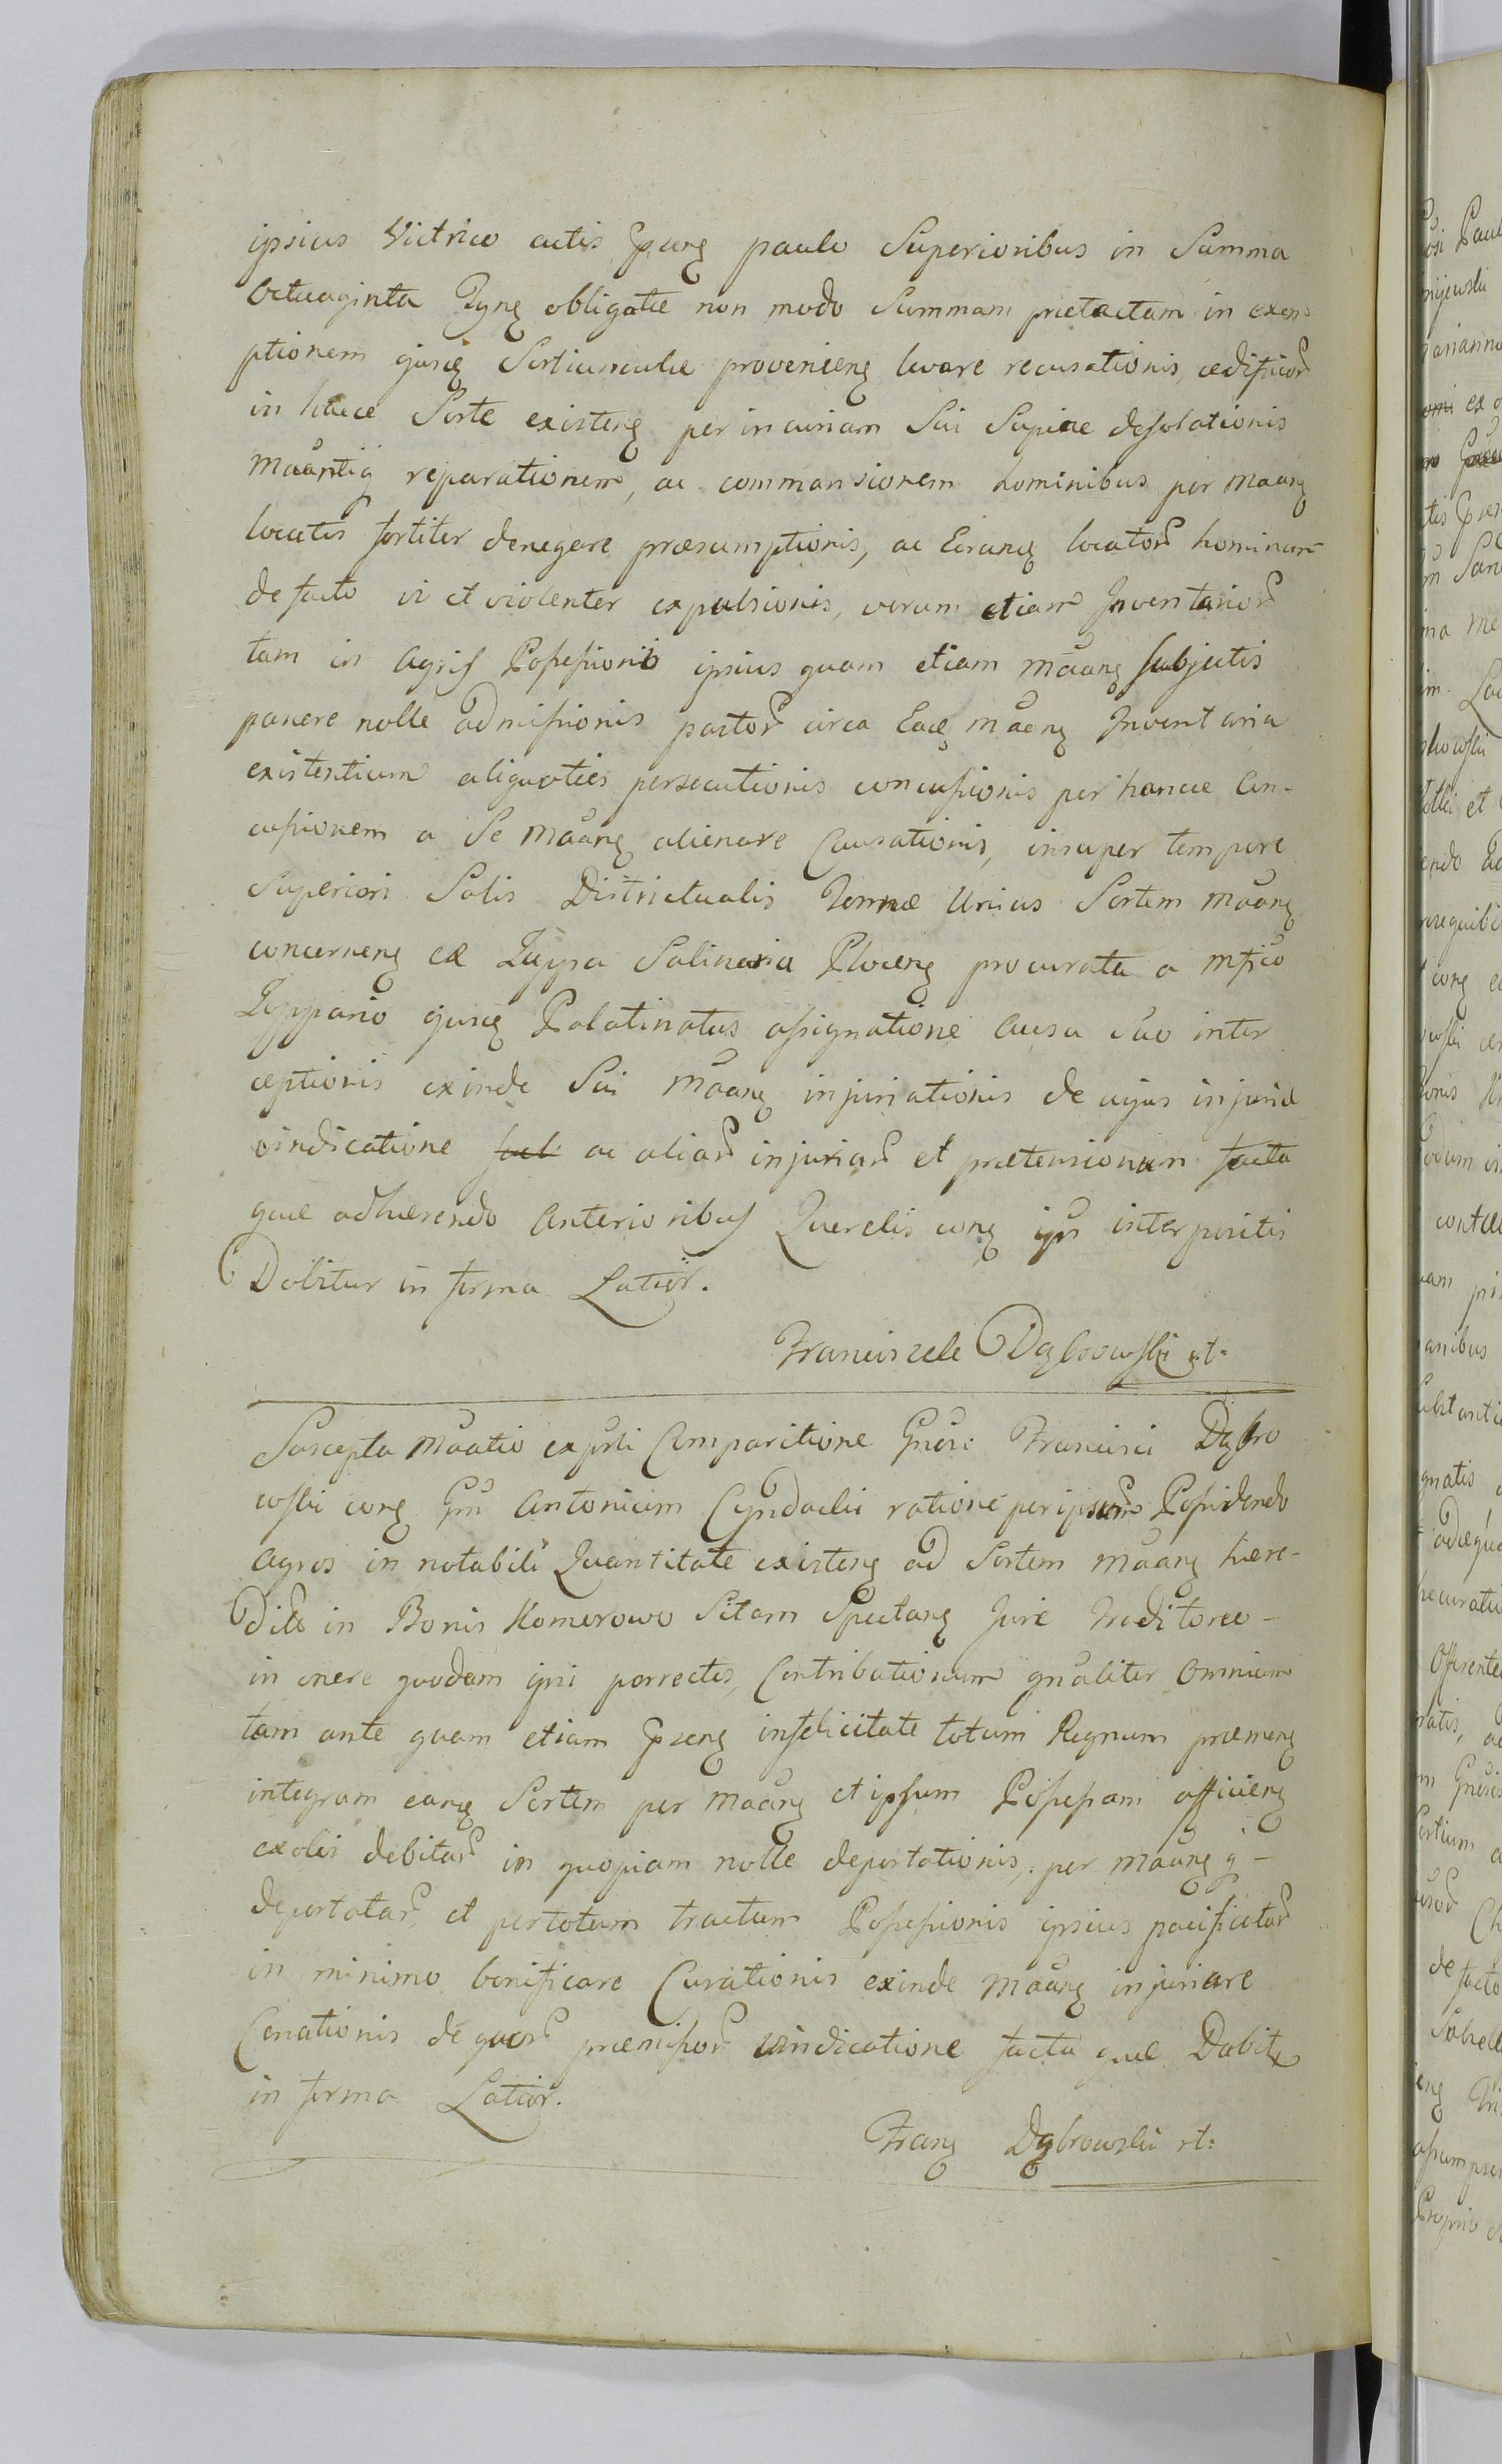 ipsius Victrico actis pseng paulo Superioribus in Summa
Octuaginta Tynq obligatæ non modo Summam prætactam in exem=
ptionem ejusq Sortiunculæ provenieng levare recusationis, ædificior
in hacce Sorte existeng per incuriam Sui Supine desolationis
Maanting reparationem, ac commansionem hominibus per Maang
locatis fortiter denegare præsumptionis, ac Eorunq locator hominum
de facto vi et violenter expulsionis, verum etiam Inventarior
tam in agris Possessionis ipsius quam etiam Maang Subjectis
panere nolle admissionis pastor circa Eaq Maeng Inventaria
existentium aliquoties persecutionis concussionis per hancce Con-
cussionem a Se Maang alienare Causationis, insuper tempore
Superiori Salis Districtualis Tonnæ Unius Sortem Maang
concerneng ex Zuppa Salinaria Ploceng procurata a Mfico
Zuppario ejusq Palatinatus assignatione ausu suo inter
ceptionis exinde Sui Maang injuriationis de cujus injuriæ
vindicatione fact ac aliar injuriar et prætensionum facta
quæ adhærendo Anterioribus Querelis cong ips interpositis
Dabitur in forma Latior.
Franciszek Dąbrowski mt.
Suscepta Maatio ex prsti Comparitione Gnosi Francisci Dąbro
wski cong Gm Antonium Cyndacki ratione per ipsum Possidendo
agros in notabili Quantitate existeng ad Sortem Maang hære-
dite in Bonis Komorowo Sitam Spectang Jure traditoreo -
in onere quodam ipsi porrectis, Contributionum gnaliter omnium
tam ante quam etiam pseng infelicitate totum Regnum præmeng
integram eanq Sortem per Maang et ipsum Possessam afficieng
exolvi debitar in quopiam nolle deportationis, per Maang q -
deportatar, et per totum tractum Possessionis ipsius pacificatar
in minimo bonificare Curationis exinde Maang injuriare
Conationis de quor præmissor vindicatione facta quæ Dabitr
in forma Latior.
Frang Dąbrowski mt: